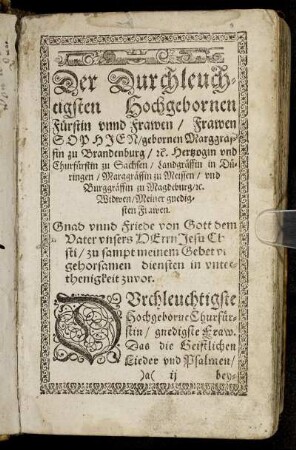 Der Durchleuch-
tigsten Hochgebornen
Fürstin vnnd Frawen / Frawen
SOPHIEN / gebornen Marggraf-
fin zu Brandenburg / ꝛc. Hertzogin vnd
Churfürstin zu Sachsen / Landgräffin in Dü-
ringen / Marggräffin zu Meissen / vnd
Burggräffin zu Magdeburg / ꝛc.
Widwen / Meiner gnedig-
sten Frawen.
Gnad vnnd Friede von Gott dem
Vater vnsers HErrn Jesu
sti / zu sampt meinem Gebet
gehorsamen diensten in vnte-
thenigkeit zuvor.
DVrchleuchtigste
Hochgeborne Churfür-
stin / gnedigste Fraw.
Das die Geistlichen
Lieder vnd Psalmen /
)a( ij bey-